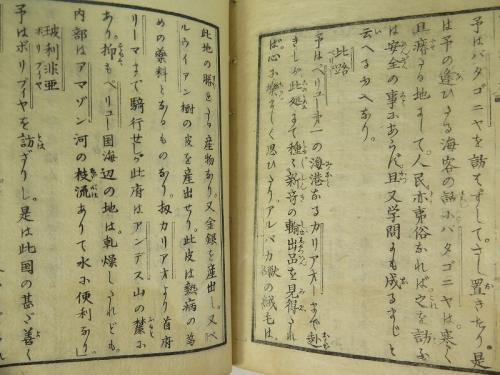 予はパタゴニヤを訪はずして。さし置きたり。是
は予の逢ひたる海客の話にパタゴニヤは。寒く
且瘠たる地にして。人民亦夷俗なれば。之を訪ふ
は安全の事にあらず。且又学問にも成るまじと
云へるゆへなり。
此路
予はペリュー第一の海港なるカリアオーまで赴
きしが此処にて種〻新奇の輸出品を見得され
ば。心に楽しく思ひたりアルパカ獣の絨毛は。
此地の勝れたる産物なり。又金銀を産出し。又ペ
ルウイアン樹の皮を産出せり。此皮は熱病の為
めの薬料となるものなり。扨カリアオより首府
リーマまで騎行せしが此府はアンデス山の麓に
あり。抑もペリュー国海辺の地は。乾燥しけれども。
内部はアマゾン河の枝流ありて水に便利なり」
玻利非亜
ボリブイヤ
予はボリブイヤを訪ざりし。是は此国の甚だ善く